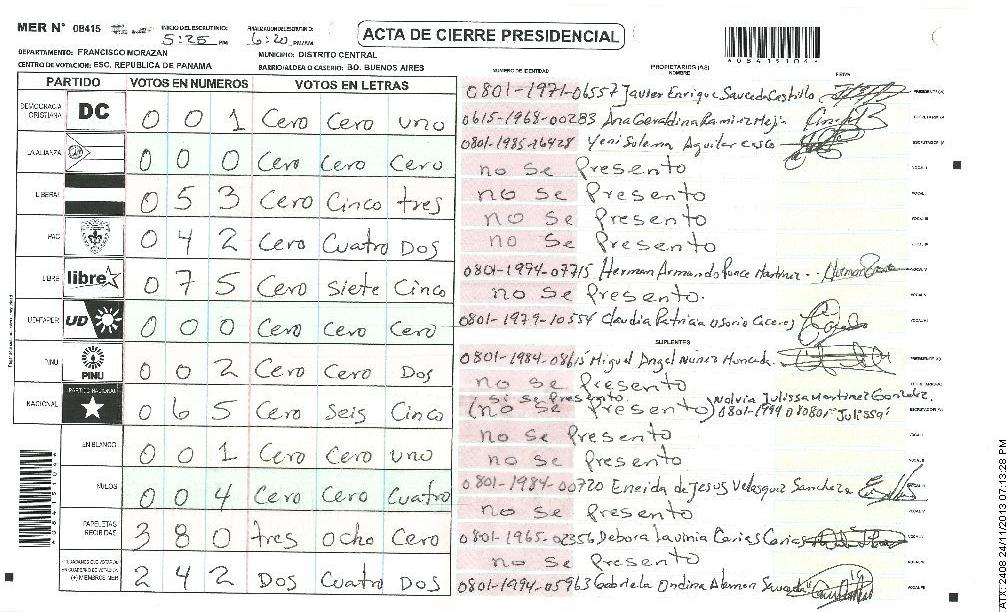 MER N° 08415 INICIO DEL ESCRUTINIO: 5:25 PM FINALIZACION ESCRUTINIO: 6:20 PM/AM
ACTA DE CIERRE PRESIDENCIAL
DEPARTAMENTO: FRANCISCO MORAZAN MUNICIPIO: DISTRITO CENTRAL
CENTRO DE VOTACION: ESC. REPUBLICA DE PANAMA BARRIO/ALDEA O CASERIO: BO. BUENOS AIRES
PARTIDO VOTOS EN NUMEROS VOTOS EN LETRAS
DEMOCRACIA CRISTIANA DC 0 0 1 Cero Cero uno
LA ALIANZA 0 0 0 Cero Cero Cero
LIBERAL 0 5 3 Cero Cinco tres
PAC 0 4 2 Cero Cuatro Dos
LIBRE libre 0 7 5 Cero Siete Cinco
UD-FAPER UD 0 0 0 Cero Cero Cero
PINU PINU 0 0 2 Cero Cero Dos
NACIONAL PARTIDO NACIONAL 0 6 5 Cero Seis Cinco
EN BLANCO 0 0 1 Cero Cero uno
NULOS 0 0 4 Cero Cero Cuatro
PAPELETAS RECIBIDAS 3 8 0 tres ocho Cero
(+) MIEMBROS MER 2 4 2 Dos Cuatro Dos
NUMERO DE IDENTIDAD PROPIETARIOS (AS) NOMBRE FIRMA
0801-1971-06557 Javier Enrique Sauceda Castillo
0615-1968-00283 Ana Geraldina Ramirez Mejia
0801-1985-16428 Yeni Solema Aguilar Casco
no Se Presento
no Se Presento
no Se Presento
no Se Presento
0801-1994-07715 Herman Armando Ponce Martinez
no Se Presento.
0801-1979-10554 Claudia Patricia Osorio Caceres
SUPLENTES
0801-1984-08615 Miguel Angel Núñez Moncada
no Se Presento
Si se Presento. Nolvia Julissa Martinez Gonzalez.
(no Se Presento) 0801-1994 08080 Julissa
no Se Presento
no Se Presento
0801-1984-00720 Eneida de Jesus Velasquez Sanchez
no Se Presento
0801-1965-02356 Debora Lavinia Carias Carias
no Se Presento
0801-1994-05963 Gabriela Ondina Aleman Sauceda
24/11/2013 07:13:28 PM